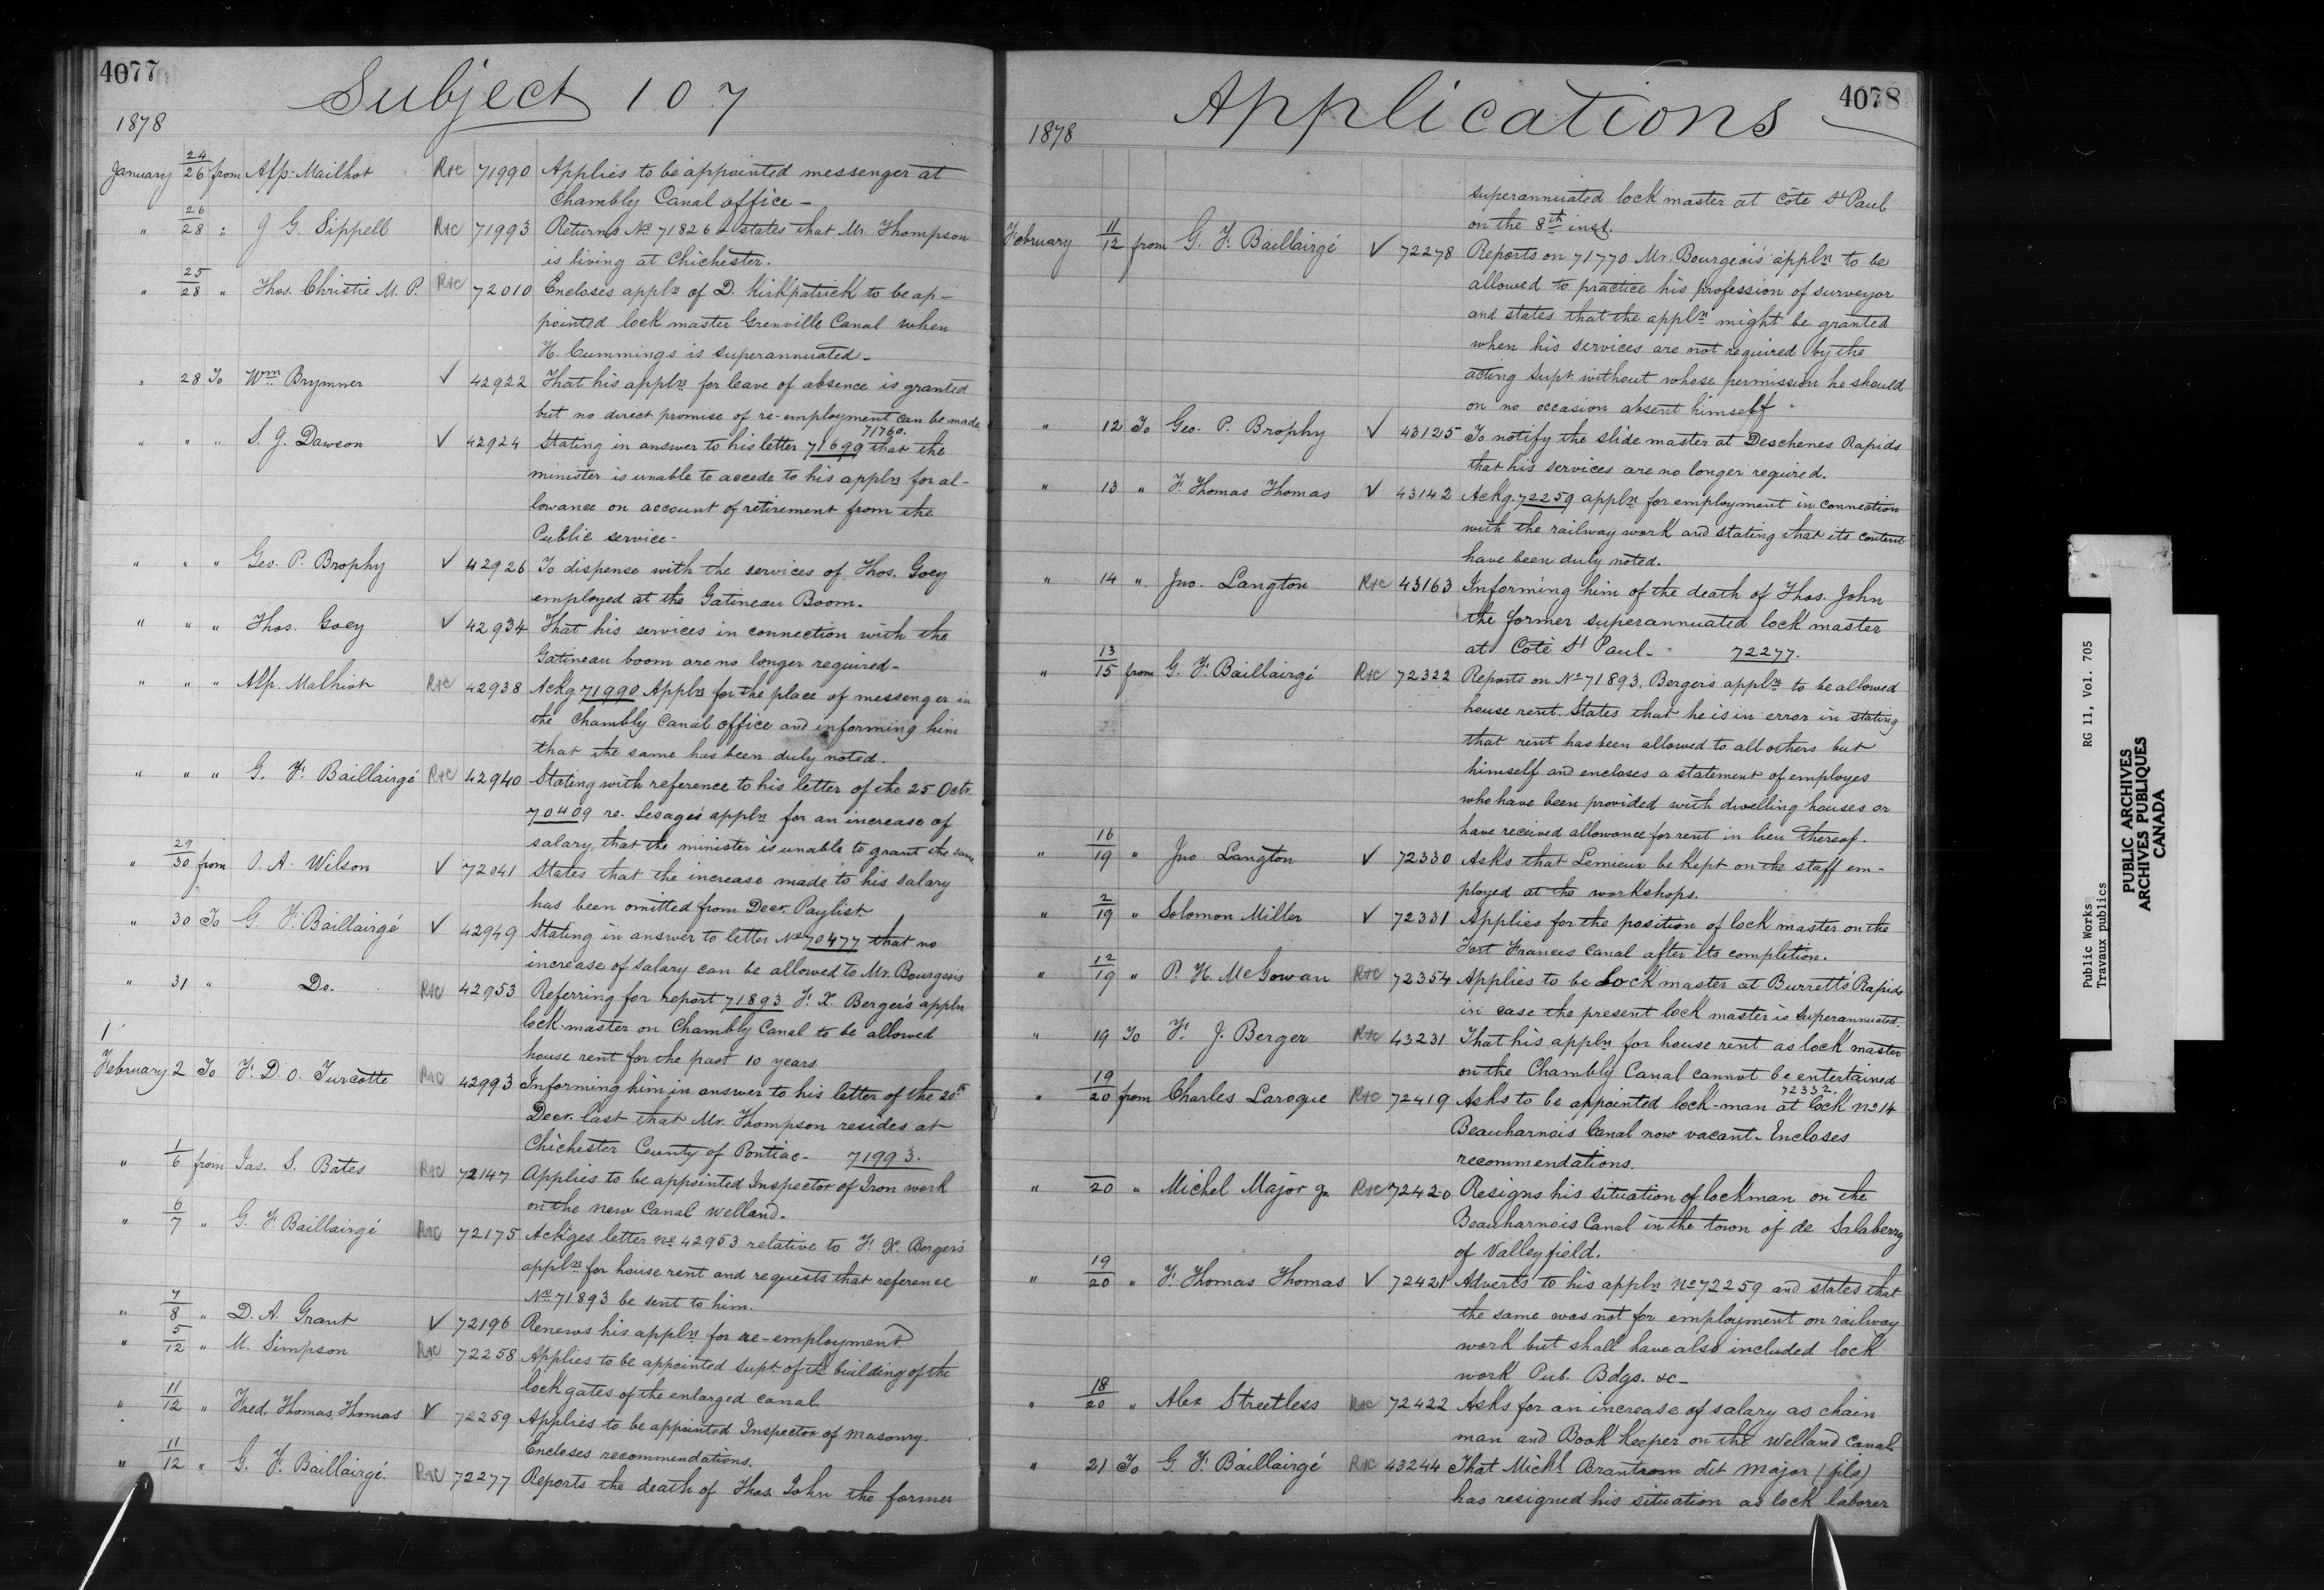 4077
Subject 107
1878
January 24/26 from Alp: Mailhot R&C 71990 Applies to be appointed messenger at
Chambly Canal office -
" 26/28 " J. G. Sippell R&C 71993 Returns No 71826 & states that Mr. Thompson
is living at Chichester.
" 25/28 " Thos. Christie M. P. R&C 72010 Encloses appln of D. Kirkpatrick to be ap-
pointed lock master Grenville Canal when
H. Cummings is superannuated -
" 28 To Wm Brymner ✓ 42922 That his appln for leave of absence is granted
but no direct promise of re-employment can be made
71760.
" " " S. J. Dawson ✓ 42924 Stating in answer to his letter 71699 that the
minister is unable to accede to his appln for al-
lowance on account of retirement from the
Public service -
" " " Geo. P. Brophy ✓ 42926 To dispense with the services of Thos. Goey
employed at the Gatineau Boom.
" " " Thos. Goey ✓ 42934 That his services in connection with the
Gatineau boom are no longer required -
" " " Alp. Malhiot R&C 42938 Ackg 71990 Appln for the place of messenger in
the Chambly Canal office and informing him
that the same has been duly noted.
" " " G. F. Baillairgé R&C 42940 Stating with reference to his letter of the 25 Octr.
70409 re- Lesage's appln for an increase of
salary, that the minister is unable to grant the same
" 29/30 from O. A. Wilson ✓ 72041 States that the increase made to his salary
has been omitted from Decr. Paylist
" 30 To G. F. Baillairgé ✓ 42949 Stating in answer to letter No 70477 that no
increase of salary can be allowed to Mr. Bourgeois
" 31 " Do. R&C 42953 Referring for report 71893 F. X. Berger's appln
lock-master on Chambly Canal to be allowed
house rent for the past 10 years
February 2 To F. D. O. Turcotte R&C 42993 Informing him in answer to his letter of the 20th
Decr. last that Mr. Thompson resides at
Chichester County of Pontiac - 71993.
" 1/6 from Jas. S. Bates R&C 72147 Applies to be appointed Inspector of Iron work
on the new Canal Welland -
" 6/7 " G. F. Baillairgé R&C 72175 Ackges letter No 42953 relative to F. X. Berger's
appln for house rent and requests that reference
No 71893 be sent to him.
" 7/8 " D. A. Grant ✓ 72196 Renews his appln for re-employment
" 5/12 " M. Simpson R&C 72258 Applies to be appointed supt. of the building of the
lock gates of the enlarged canal
" 11/12 " Fred. Thomas Thomas ✓ 72259 Applies to be appointed Inspector of masonry.
Encloses recommendations.
" 11/12 " G. F. Baillairgé. R&C 72277 Reports the death of Thos. John the former
4078
Applications
1878
superannuated lock master at Côte St Paul
on the 8th inst.
February 11/12 from G. F. Baillairgé ✓ 72278 Reports on 71770 Mr. Bourgeois' appln to be
allowed to practice his profession of surveyor
and states that the appln might be granted
when his services are not required by the
acting Supt. without whose permission he should
on no occasion absent himself
" 12 To Geo. P. Brophy ✓ 43125 To notify the slide master at Deschenes Rapids
that his services are no longer required.
" 13 " F. Thomas Thomas ✓ 43142 Ackg. 72259 appln for employment in connection
with the railway work and stating that its content
have been duly noted.
" 14 " Jno. Langton R&C 43163 Informing him of the death of Thos. John
the former superannuated lock master
at Côté St Paul - 72277.
" 13/15 from G. F. Baillairgé R&C 72322 Reports on No 71893, Berger's appln to be allowed
house rent. States that he is in error in stating
that rent has been allowed to all others but
himself and encloses a statement of employes
who have been provided with dwelling houses or
have received allowance for rent in lieu thereof.
" 16/19 " Jno Langton ✓ 72330 Asks that Lemieux be kept on the staff em-
ployed at the workshops.
" 2/19 " Solomon Miller ✓ 72331 Applies for the position of lock master on the
Fort Frances Canal after its completion.
" 12/19 " P. H. McGowan R&C 72354 Applies to be Lock master at Burrett's Rapids
in case the present lock master is superannuated.
" 19 To F. J. Berger R&C 43231 That his appln for house rent as lock master
on the Chambly Canal cannot be entertained
72332.
" 19/20 from Charles Laroque R&C 72419 Asks to be appointed lock-man at lock No 14
Beauharnois Canal now vacant - Encloses
recommendations.
" 20 " Michel Major jr. R&C 72420 Resigns his situation of lockman on the
Beauharnois Canal in the town of de Salaberry
of Valleyfield.
" 19/20 " F. Thomas Thomas ✓ 72421 Adverts to his appln No 72259 and states that
the same was not for employment on railway
work but shall have also included lock
work Pub. Bdgs. &c -
" 18/20 " Alex Streetless R&C 72422 Asks for an increase of salary as chain
man and Book Keeper on the Welland Canal
" 21 To G. F. Baillairgé R&C 43244 That Michl. Brantrom dit Major (fils)
has resigned his situation as lock laborer
Public Works RG 11, Vol. 705
Travaux publics
PUBLIC ARCHIVES
ARCHIVES PUBLIQUES
CANADA